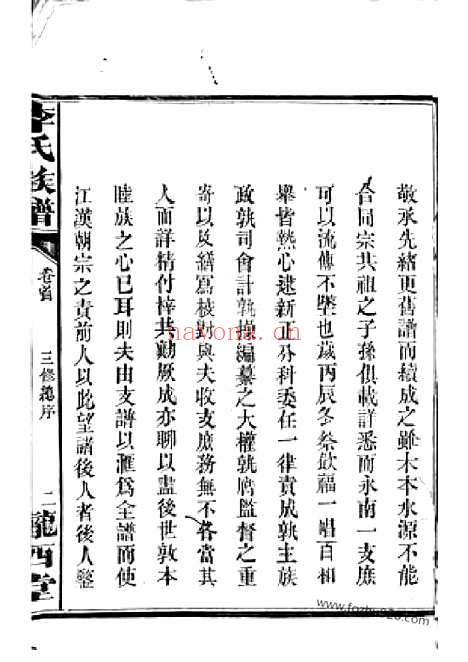 敬承先緒更舊譜而續成之雖木本水源不能
合同宗共祖之子孫俱載詳悉而永南一支庶
可以流傳不墜也歲丙辰冬祭飲福一唱百相
舉皆熱心逮新正分科委任一律責成孰主族
政孰司會計孰操編纂之大權孰膺監督之重
寄以及繕寫校對與夫收支庶務無不各當其
人而詳精付梓共勷厥成亦聊以盡後世敦本
睦族之心已耳則夫由支譜以滙為全譜而使
江漢朝宗之責前人以此望諸後人者後人鑒
李氏族譜
卷首
三修總序
二
隴西堂
nayona.cn
www.fozhu920.com